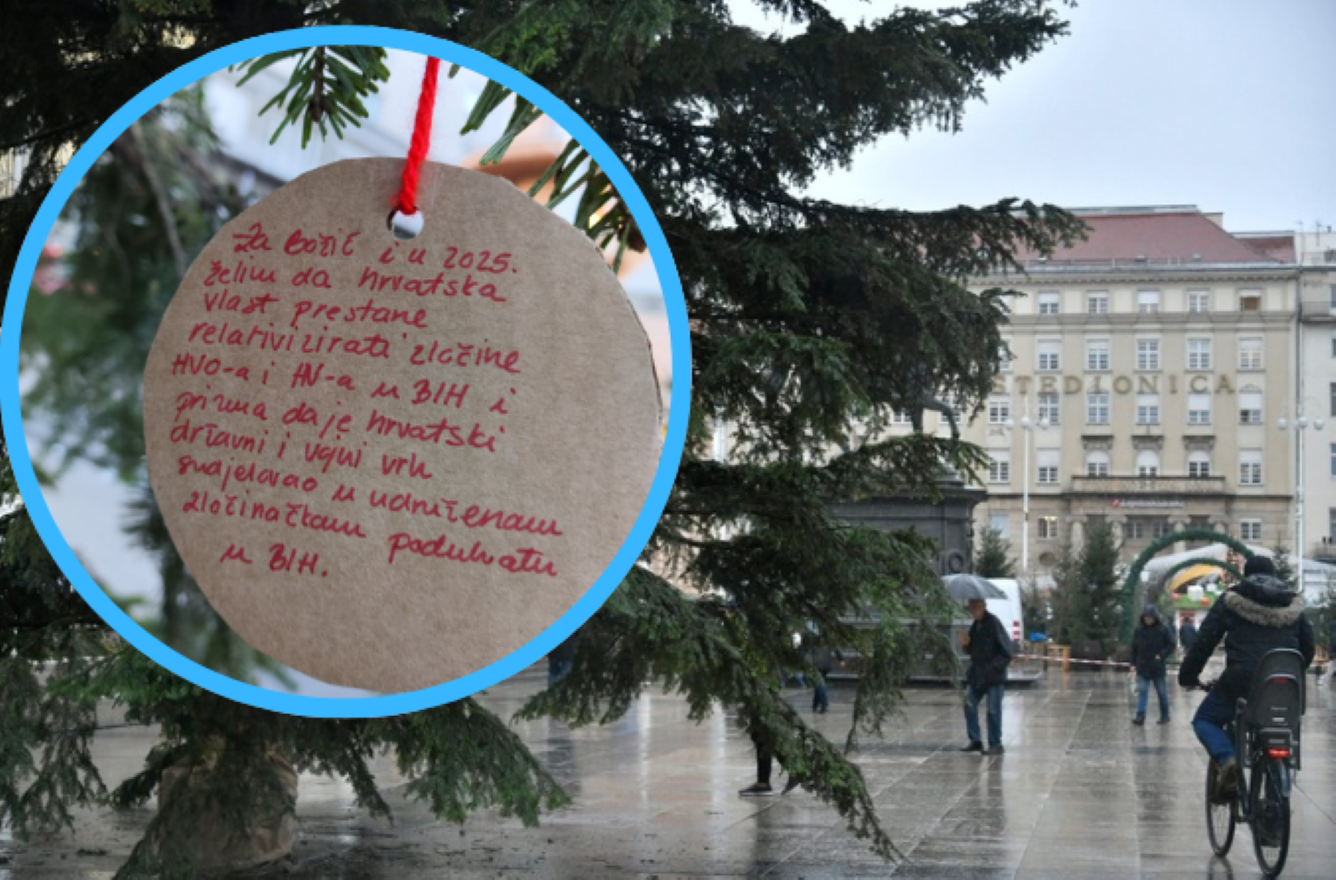 Za Božić i u 2025.
želim da hrvatska
vlast prestane
relativizirati zločine
HVO-a i HV-a u BIH i
prizna da je hrvatski
državni i vojni vrh
sudjelovao u udruženom
zločinačkom poduhvatu
u BIH.
ŠTEDIONICA